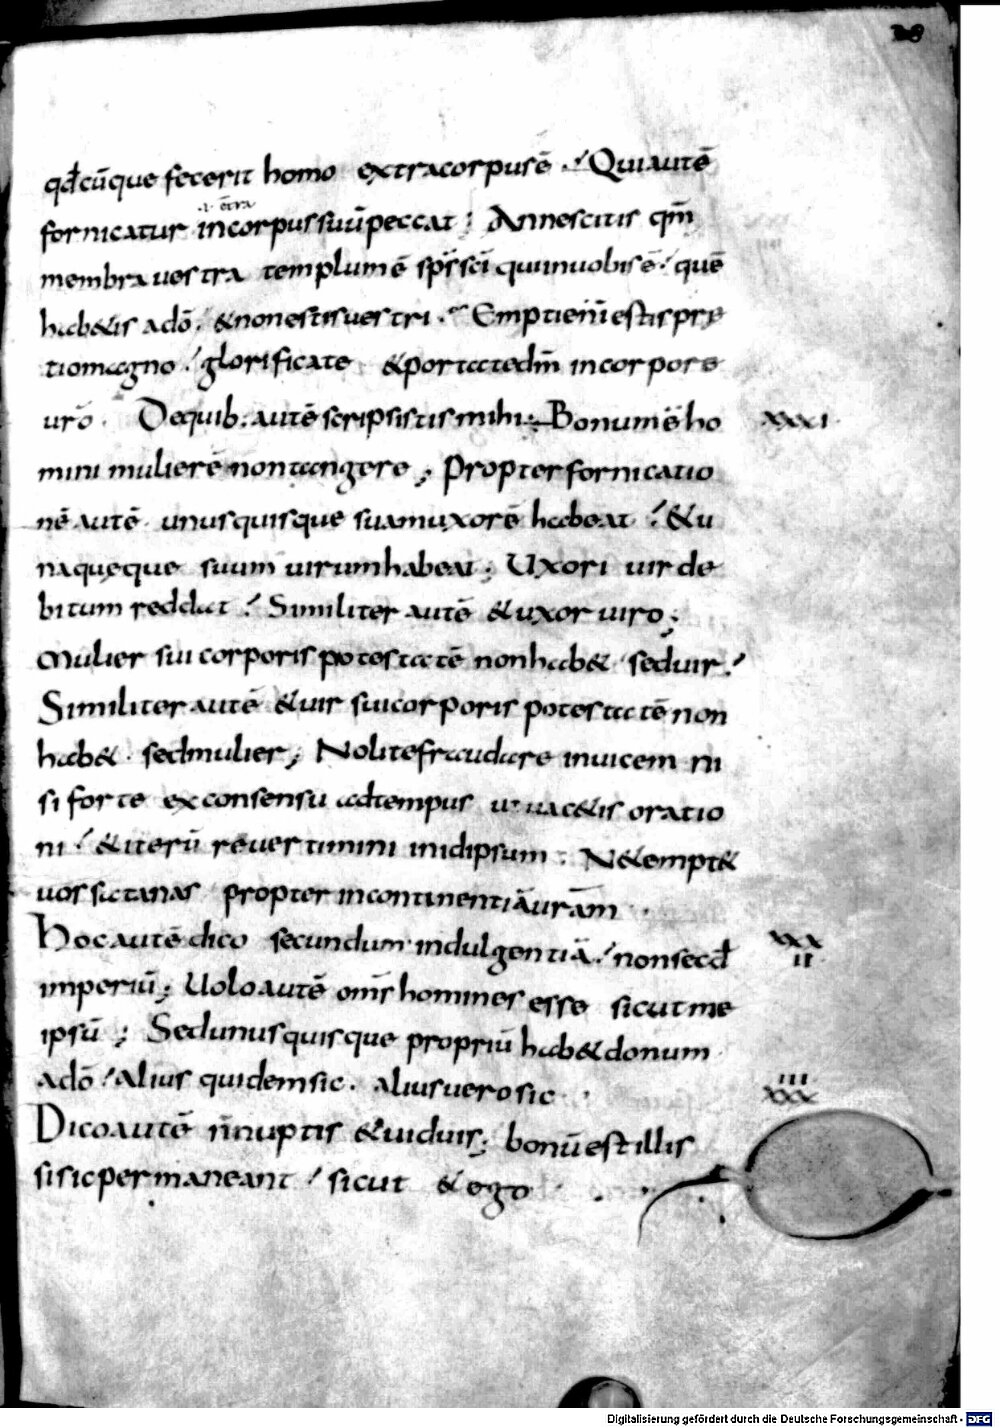 qđcūque fecerit homo extracorpusē ./ Quiautē
.i. cōtra
fornicatur incorpussuūpeccat ; Annescitis qm̄
membra uestra templumē sp̄s sc̄i quiinuobisē / quē
hab&is adō . &nonestisuestri . Emptieni̅estispre
tiomagno / glorificate &portatedm̄ incorpore
ur̄o . Dequib: autē scripsistis mihi ; Bonumēho
XXXI
mini mulierē nontangere ; Propter fornicatio
nē autē unusquisque suamuxorē habeat / &u
naqueque suum uirumhabeat ; Uxori uir de
bitum reddat / Similiter autē &uxor uiro ;
Mulier sui corporis potestatē nonhab& seduir /
Similiter autē &uir suicorporis potestatē non
hab& sedmulier ; Nolitefraudare inuicem ni
si forte exconsensu adtempus utuac&is oratio
ni / &iterū reuertimini inidipsum . N&empt&
uos satanas propter incontinentiāuram̄ .
Hocautē dico secundum indulgentiā / nonsecđ
XXX
II
imperiū ; Uoloautē om̄s homines esse sicutme
ipsū ; Sedunusquisque propriū hab&donum
adō / alius quidemsic . aliusuerosic .
III
XXX
Dicoautē n̄nuptis &uiduis ; bonūestillis
sisicpermaneant / sicut &ego
Digitalisierung gefördert durch die Deutsche Forschungsgemeinschaft - DFG